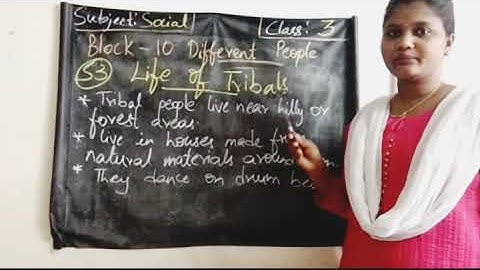 Subject: Social
Class: 3
Block - 10 Different People
S3 Life of Tribals
* Tribal people live near hilly or
forest areas.
* Live in houses made
natural materials
* They dance on drum